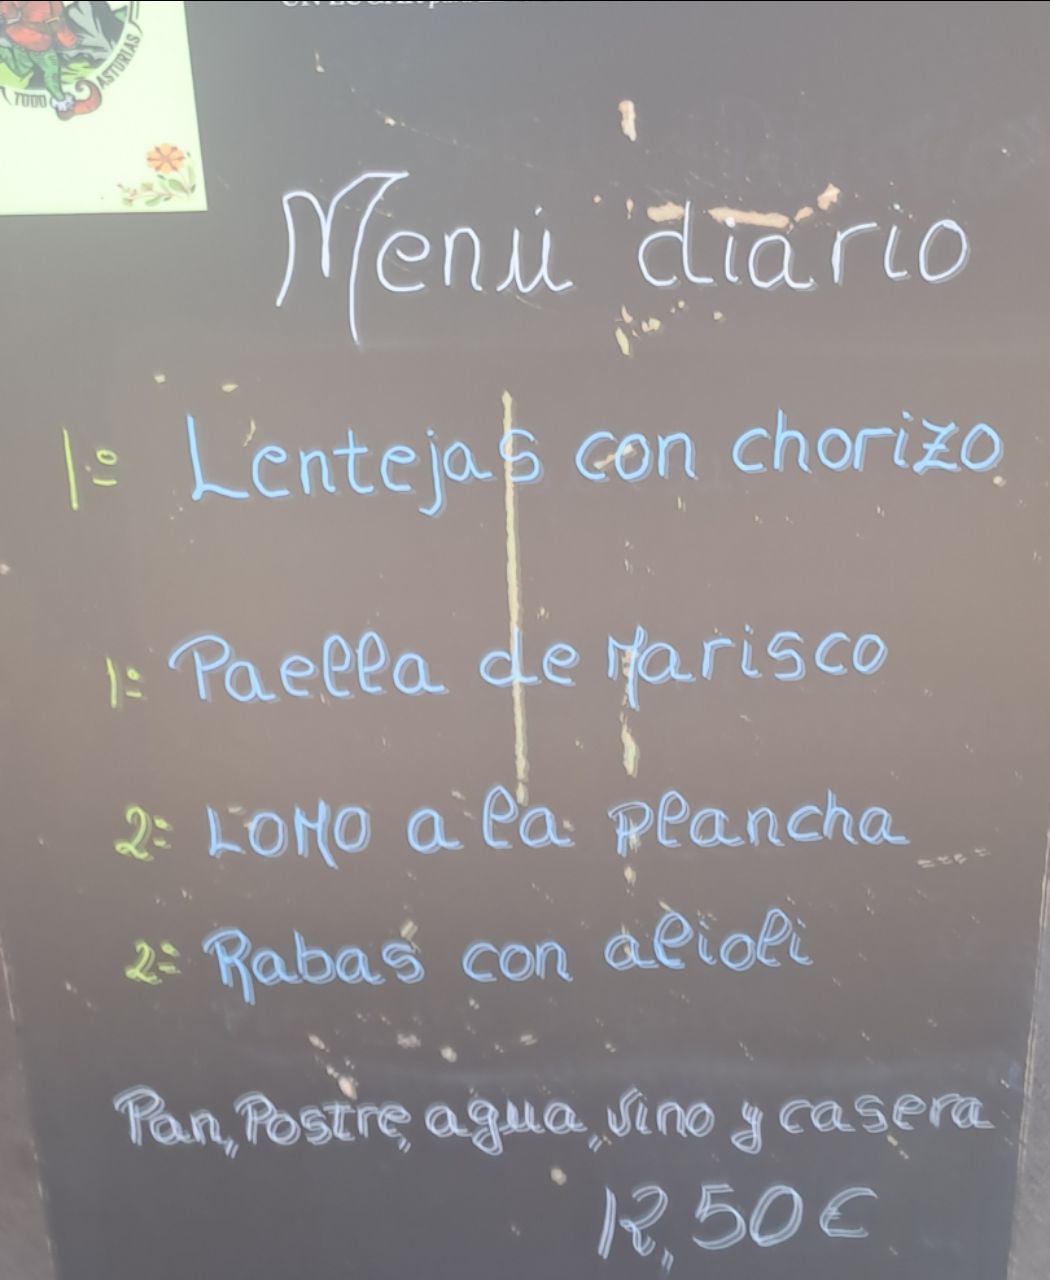 TODO ASTURIAS
Menú diario
1º Lentejas con chorizo
1º Paella de Marisco
2º LOMO a la plancha
2º Rabas con alioli
Pan, Postre, agua, vino y casera
12,50€